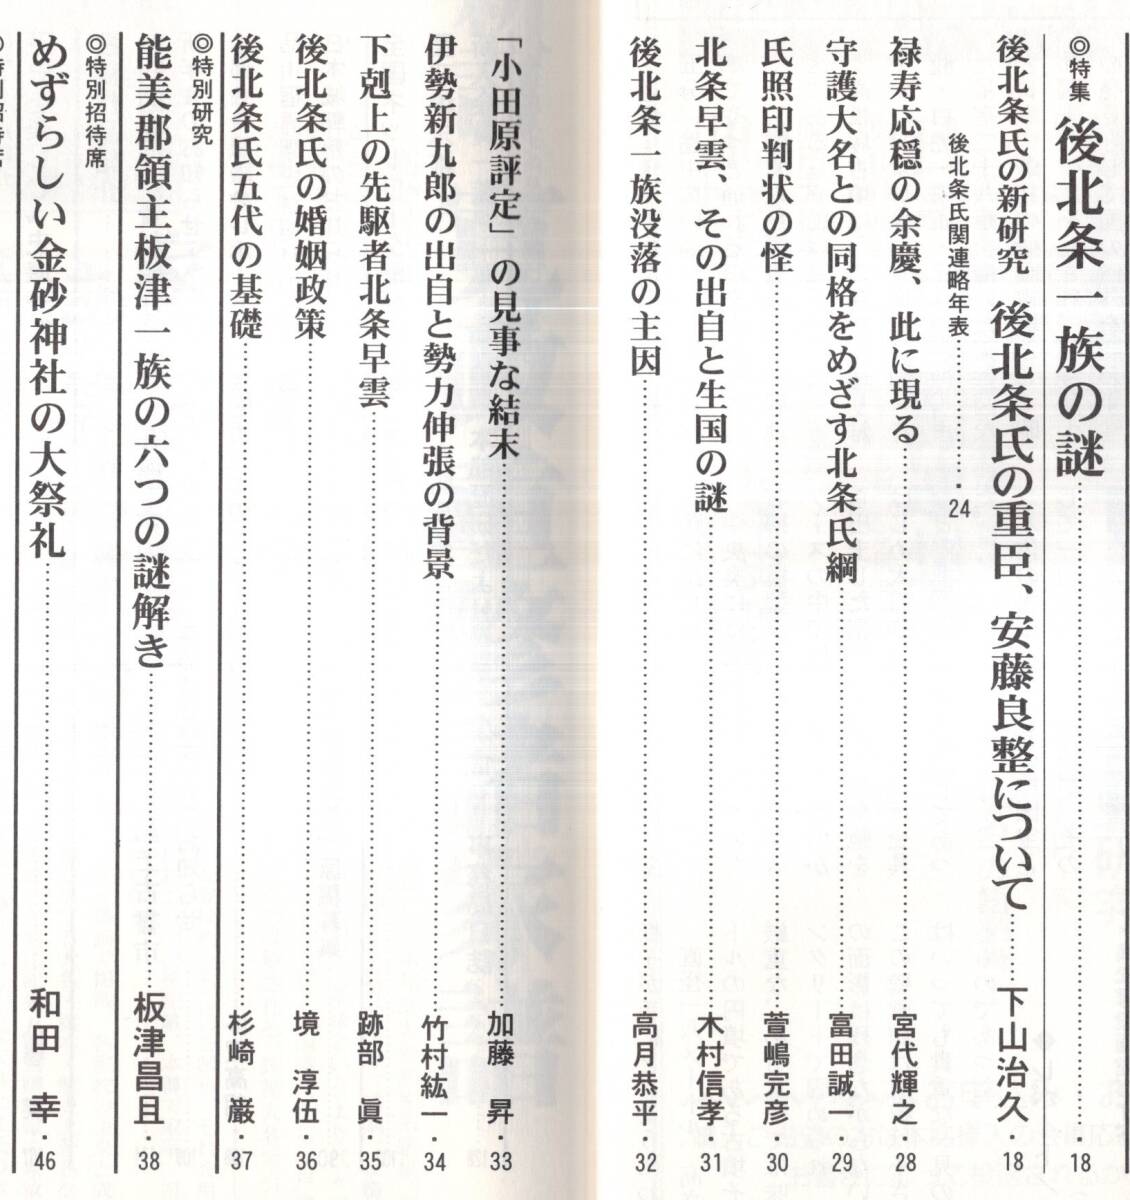 ◎特集 後北条一族の謎 18
後北条氏の新研究 後北条氏の重臣、安藤良整について 下山治久 18
後北条氏関連略年表 24
禄寿応穏の余慶、此に現る 宮代輝之 28
守護大名との同格をめざす北条氏綱 富田誠一 29
氏照印判状の怪 萱嶋完彦 30
北条早雲、その出自と生国の謎 木村信孝 31
後北条一族没落の主因 高月恭平 32
「小田原評定」の見事な結末 加藤 昇 33
伊勢新九郎の出自と勢力伸張の背景 竹村紘一 34
下剋上の先駆者北条早雲 跡部 眞 35
後北条氏の婚姻政策 境 淳伍 36
後北条氏五代の基礎 杉崎 巌 37
◎特別研究
能美郡領主板津一族の六つの謎解き 板津昌且 38
◎特別招待席
めずらしい金砂神社の大祭礼 和田 幸 46